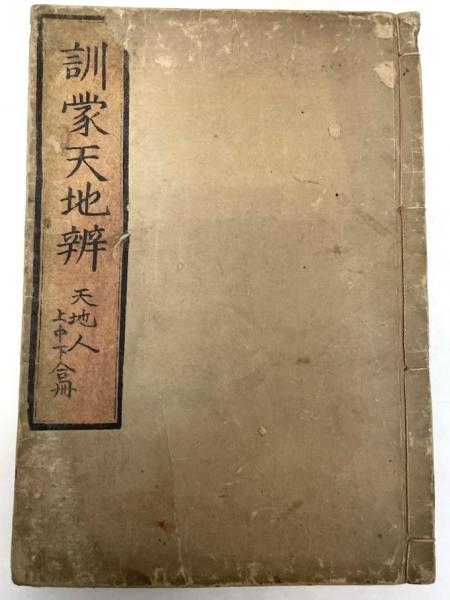 訓蒙天地辨
天地人
上中下合冊